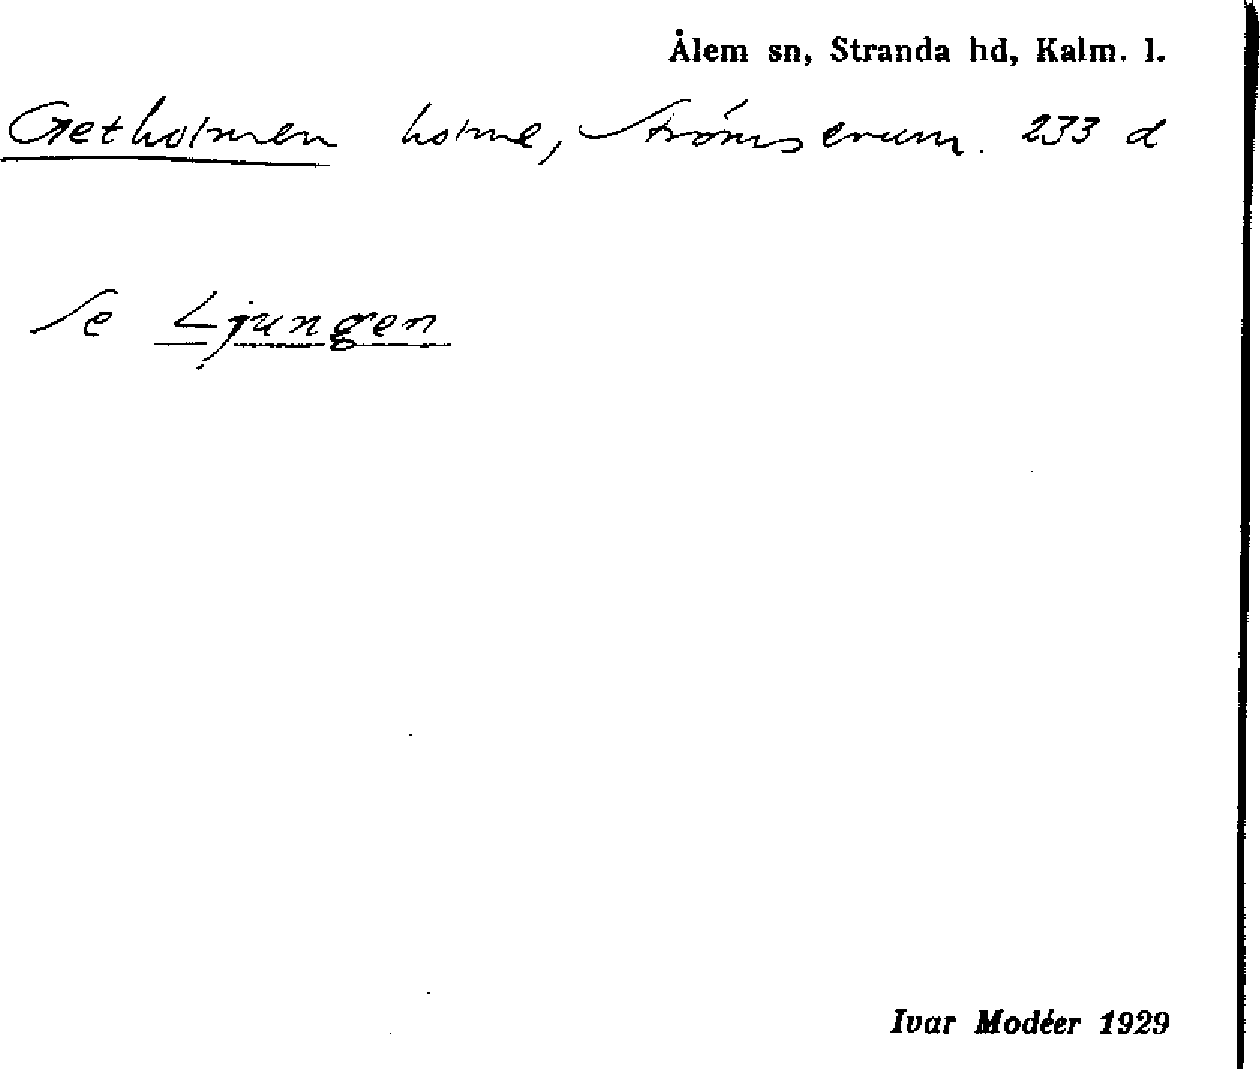 Ålem sn, Stranda hd, Kalm. l.
Getholmen holme, Strömserum. 233 d
Se Ljungen
Ivar Modéer 1929